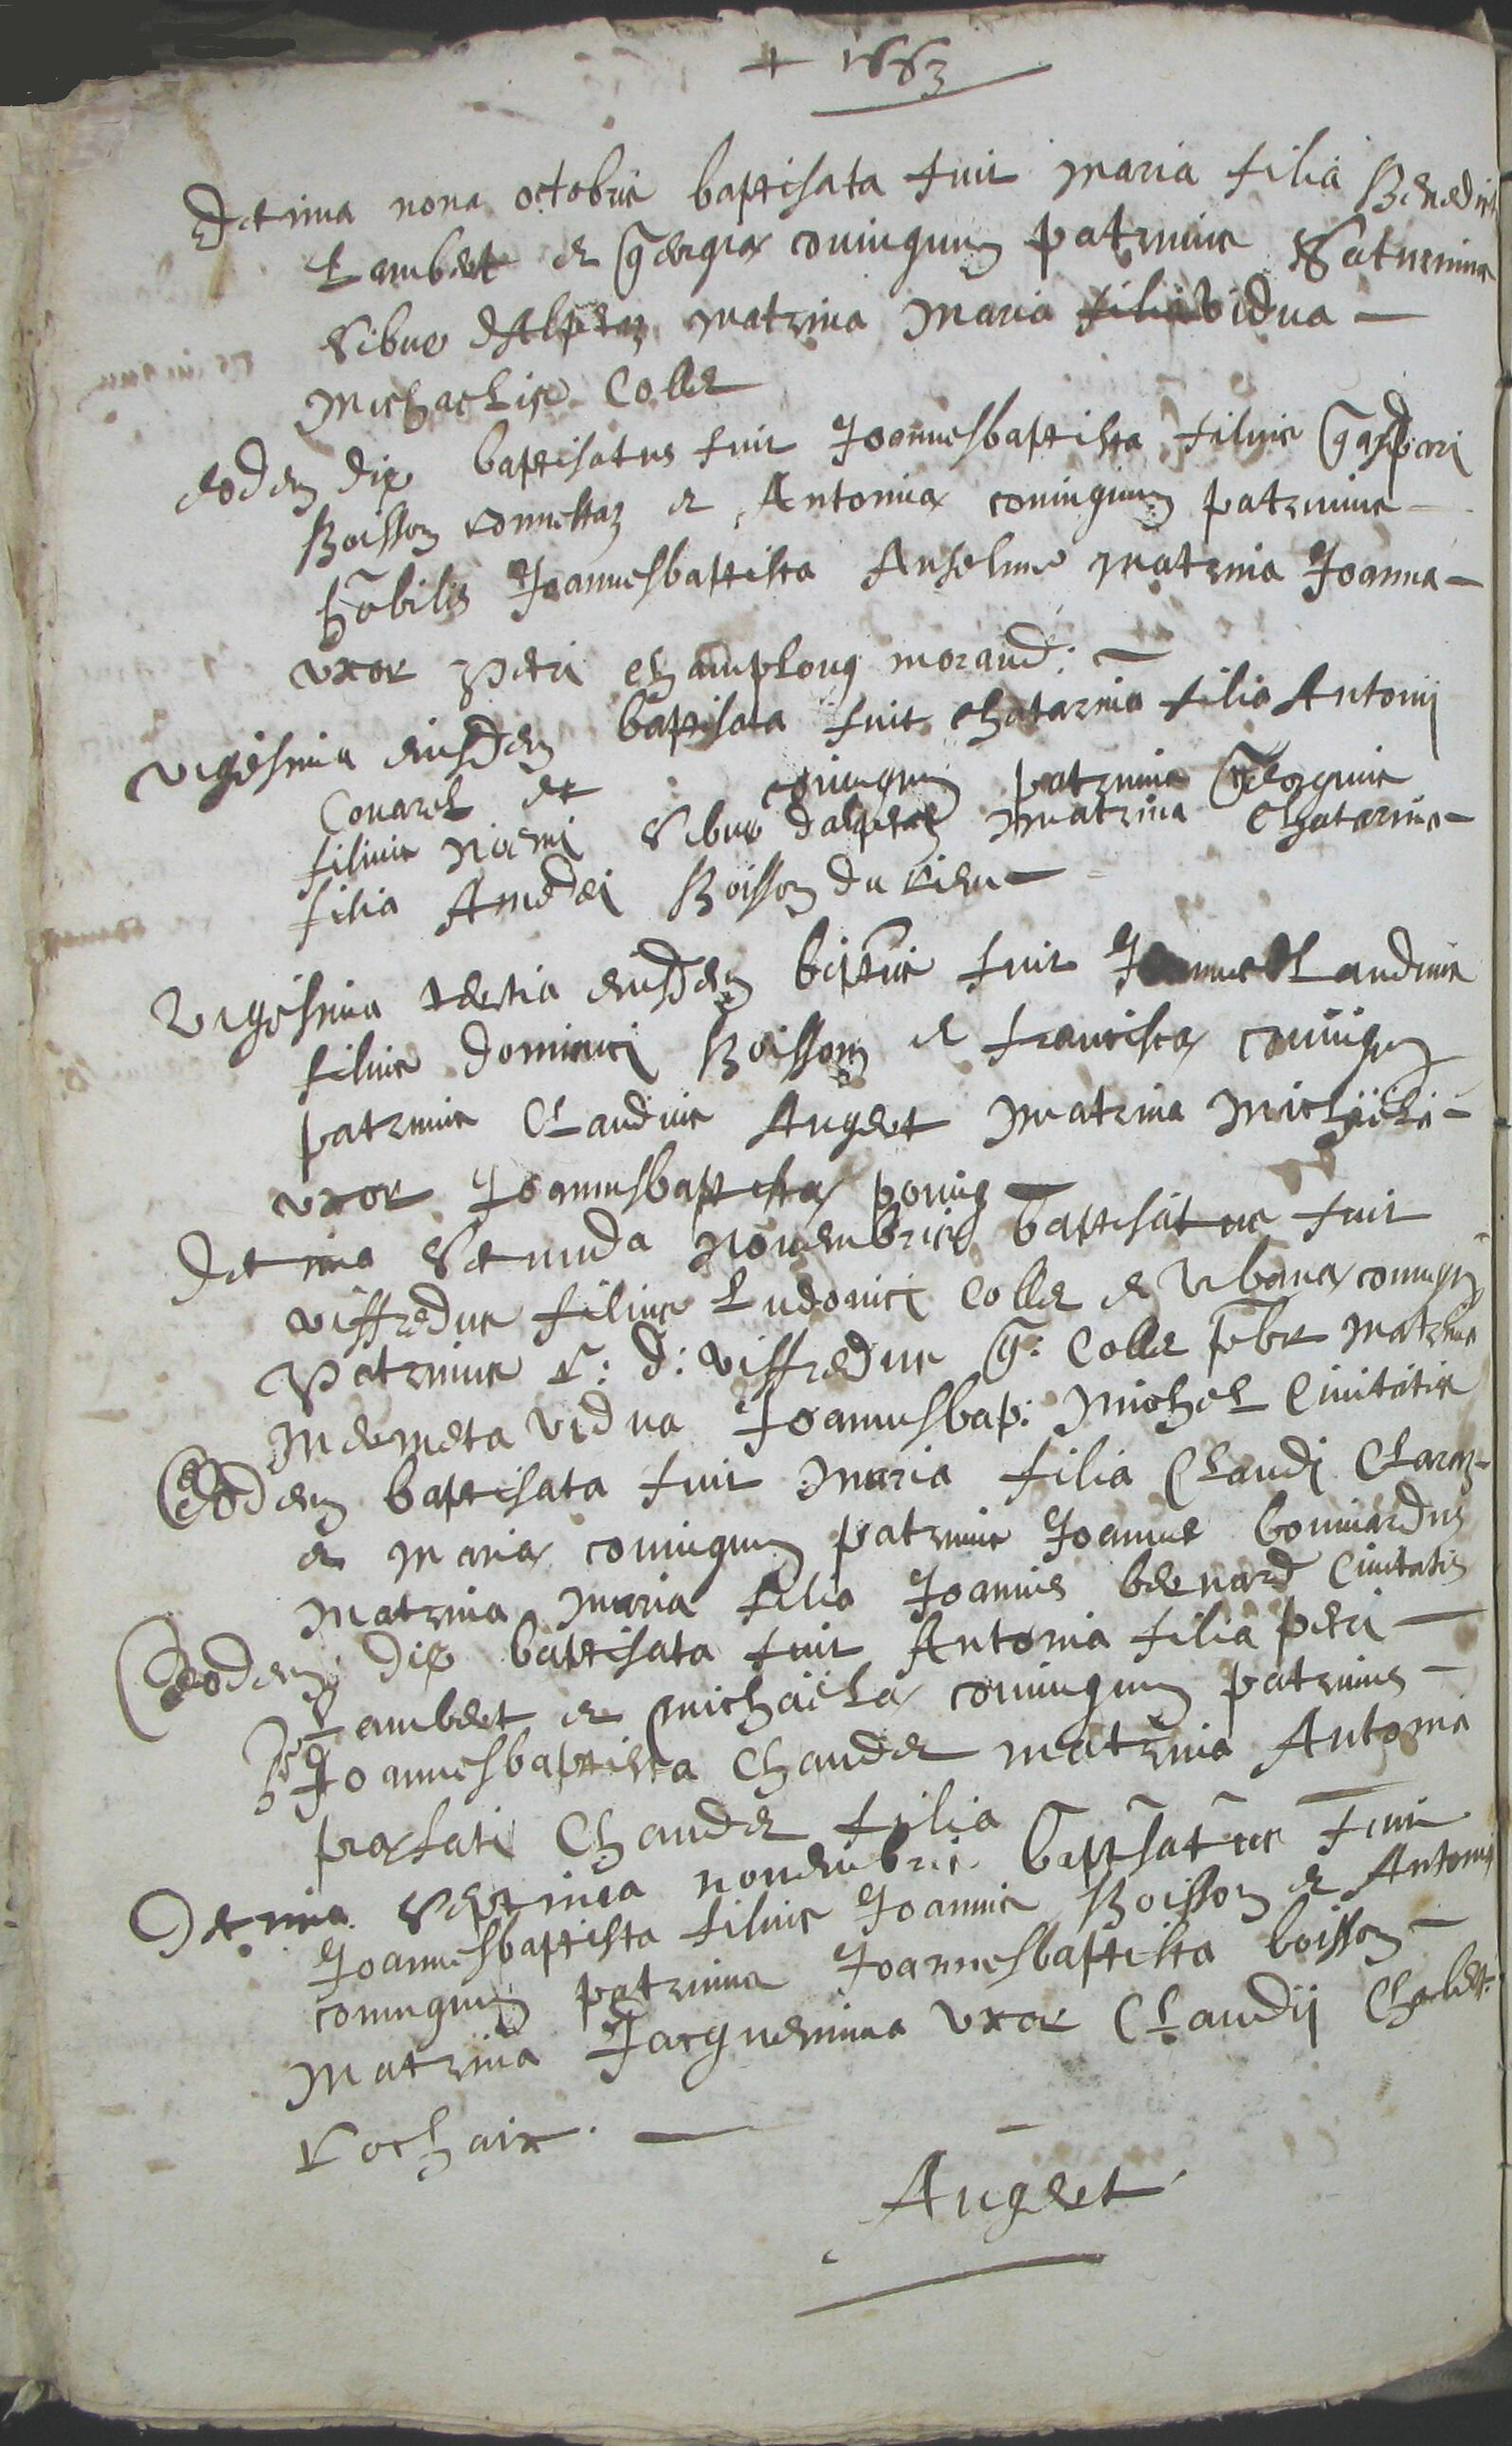 + 1663
Decima nona octobris baptisata fuit maria filia Benedicti
Lambert et georgiæ coniugum patrinus Saturninus
Sibue dalpetaz matrina maria filia vidua —
michaelis Colle
eodem die baptisatus fuit Joannesbaptista filius gaspardi
Boisson et Antoniæ coniugum patrinus —
Joannesbaptista Anselme matrina Joanna —
uxor petri champlong morand: —
vigesima eiusdem baptisata fuit chatarina filia Antonij
Couarel et coniugum patrinus georgius
filius Sibue dalpetaz matrina Chatarina —
filia Amedei Boisson du rieu —
vigesima tertia eiusdem bap.tus fuit Joannes Claudius
filius dominici Boisson et franciscæ coniugum
patrinus Claudius Auget matrina michäela —
uxor Joannisbaptistæ
decima secunda nouembris baptisatus fuit
viffredus filius Ludouici Colle et Urbanæ coniugum
patrinus r: d: viffredus g: Colle pbr matrina
mermeta vidua Joannisbap: michel Ciuitatis
Eodem baptisata fuit maria filia Claudi Claraz —
et mariæ coniugum patrinus Joannes bouuardus
matrina maria filia Joannis bernard Ciuitatis
Eodem die baptisata fuit Antonia filia petri —
Lambert et michäelæ coniugum patrinus —
Joannesbaptista Chaudet matrina Antonia
præfati Chaudet filia
Decima septima nouembris baptisatus fuit
Joannesbaptista filius Joannis Boisson et Antoniæ
coniugum patrinus Joannesbaptista boisson —
matrina Jacquemina uxor Claudij
rochaix. —
Auget